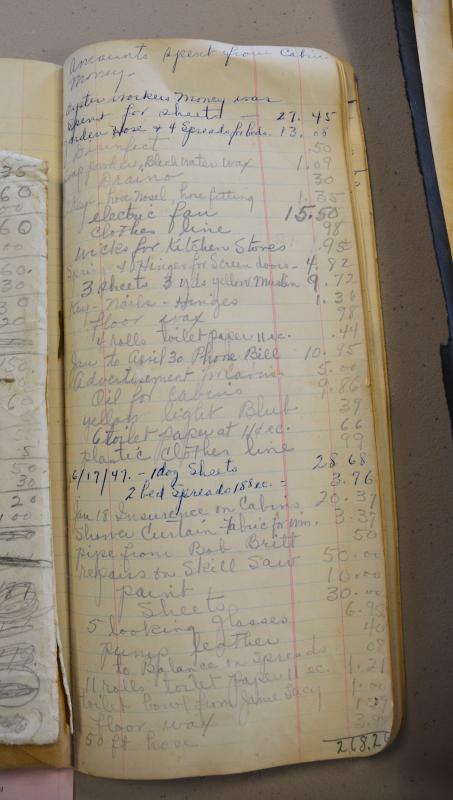 Amounts spent from Cabin
Money-
Oyster workers Money was
spent for sheets - 27.45
Garden Hose & 4 Spreads for beds. 13.08
Disinfect .50
soap powder, Bleach water wax 1.09
Draino 30
hose nosel, hose fitting 1.35
electric fan 15.50
clothes line 98
wicks for Kitchen Stoves .95
Springs & Hinges for Screen doors - 4.82
3 sheets 3 yds yellow Muslin 9.72
Key - Nails - Hinges 1.36
floor wax 98
4 rolls toilet paper 11 ec. .44
Jan to April 30 Phone Bill 10.95
Advertisement 5.00
Oil for Cabins 9.86
yellow light Blub 39
6 toilet paper at 11¢ ec. 66
plastic clothes line 99
6/17/47. - 1 doz Sheets 28 68
2 bed Spreads 188 ec. = 3.76
Jan 18 Insurence on Cabins 20.37
Shower Curtain fabric for 3.37
pipe from Bob Britt 50
repairs on Skill Saw 50.00
paint 10.00
Sheets 30.00
5 looking glasses 6.95
pump leather 40
to Balance on Spreads 08
11 rolls toilet paper 11 ec. 1.21
toilet bowl from Jamie 1.00
floor wax
50 ft hose
268.26
35
60
60
60.
30
20
150
5
50.
30
20